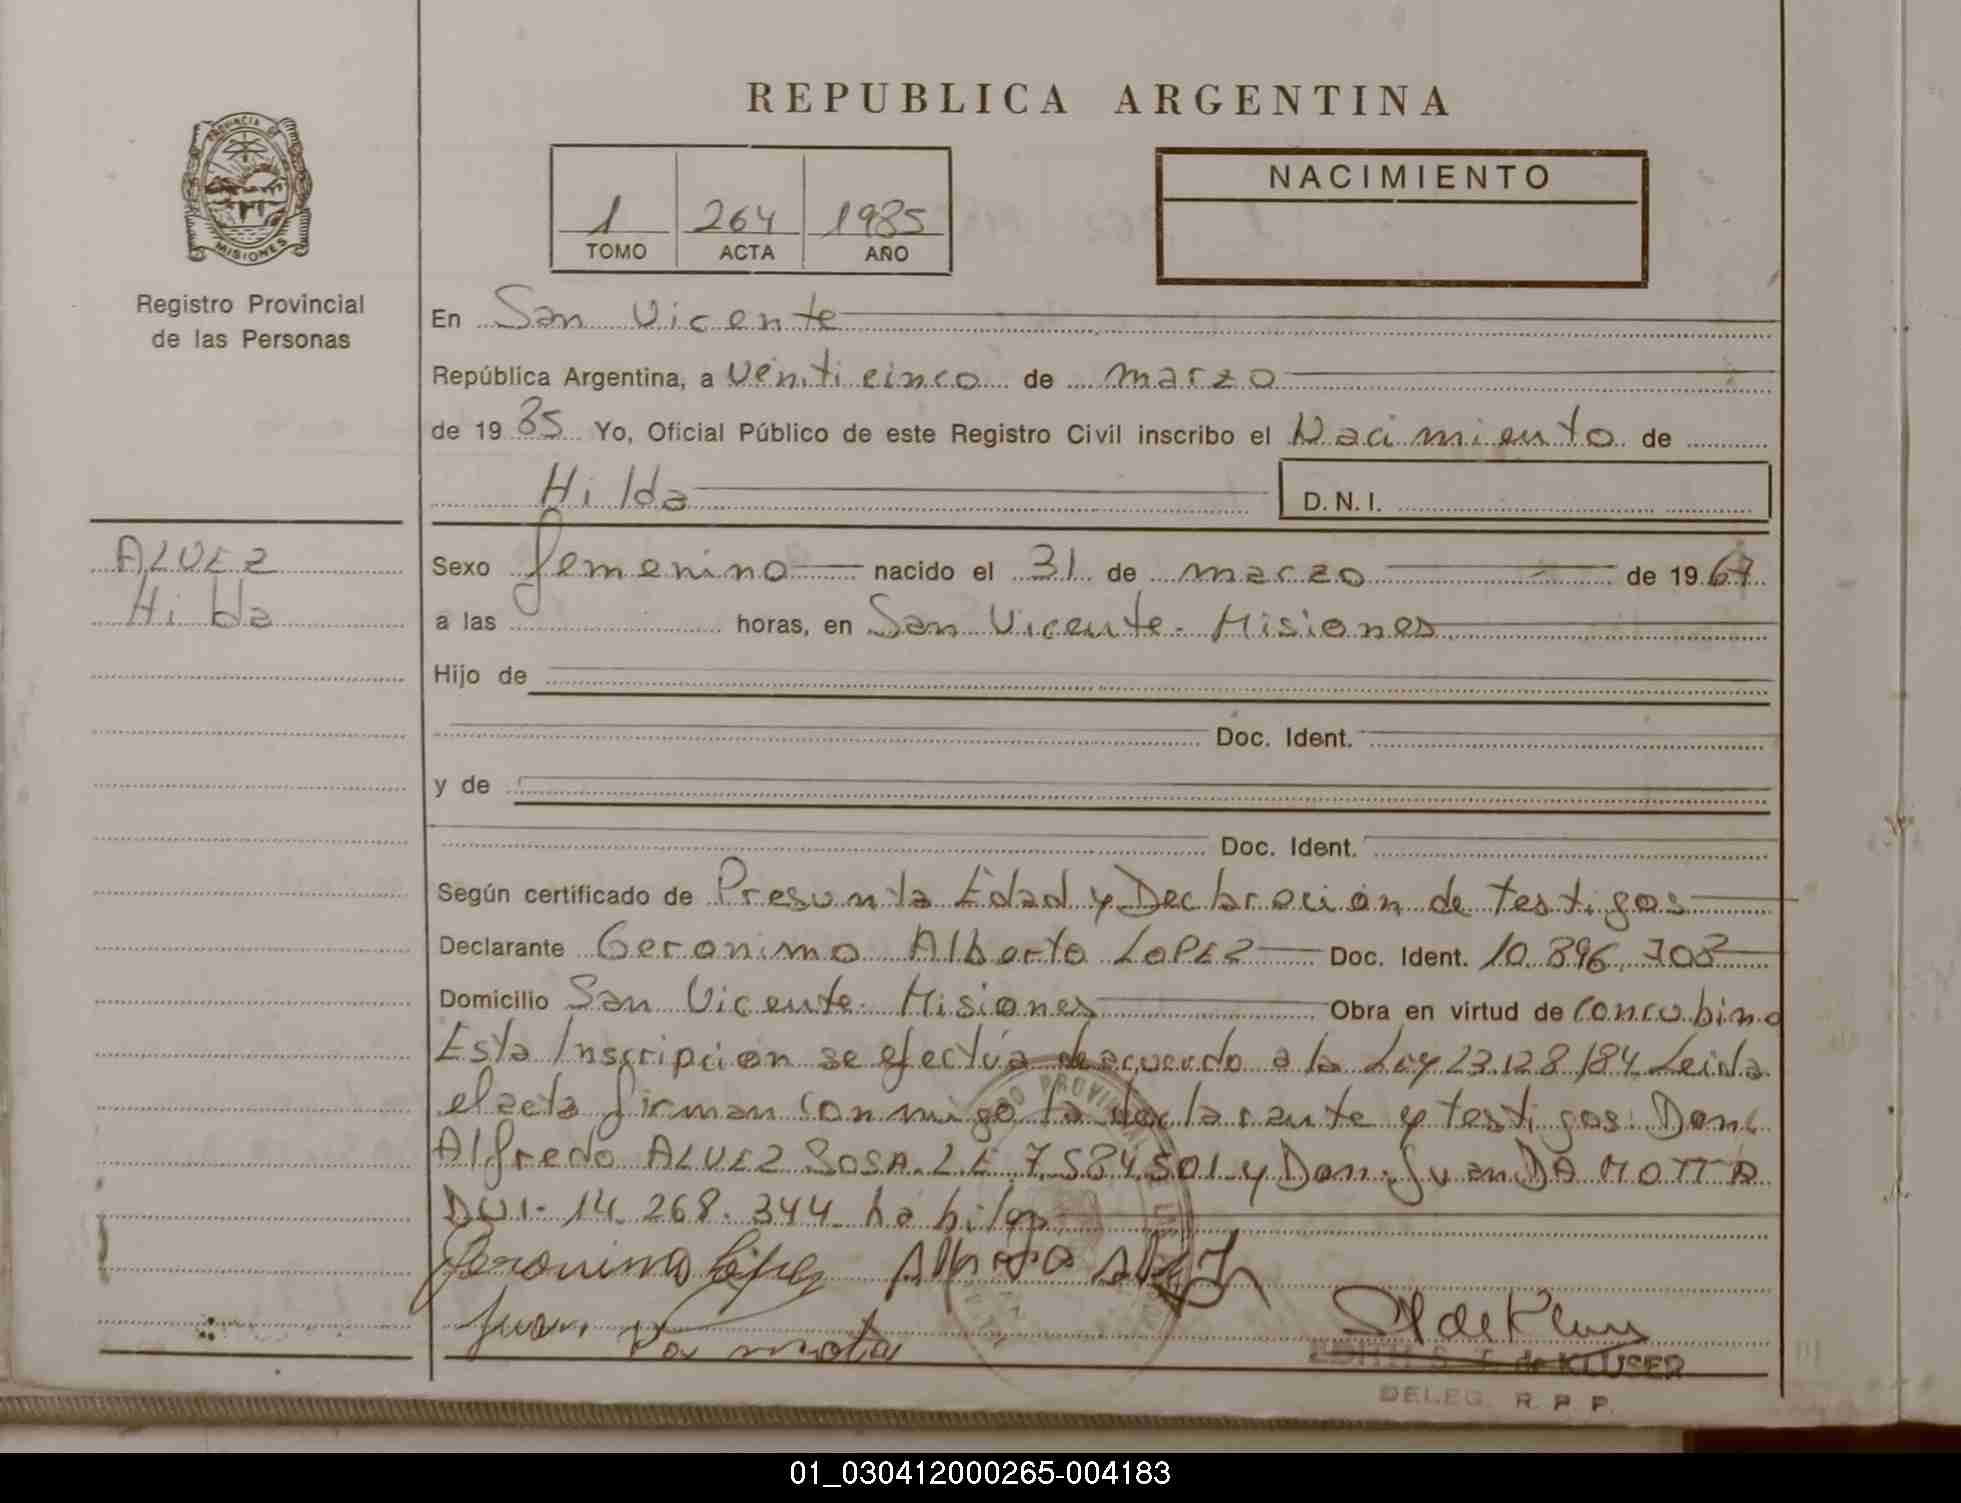 REPUBLICA ARGENTINA
PROVINCIA DE
MISIONES
Registro Provincial
de las Personas
1 264 1985
TOMO ACTA AÑO
NACIMIENTO
En San Vicente
República Argentina, a Venticinco de marzo
de 19 85 Yo, Oficial Público de este Registro Civil inscribo el Nacimiento de
Hilda
D.N.I.
ALVEZ
Hilda
Sexo femenino nacido el 31 de marzo de 19 67
a las horas, en San Vicente - Misiones
Hijo de
Doc. Ident.
y de
Doc. Ident.
Según certificado de Presunta Edad y Declaración de testigos
Declarante Geronimo Alberto LOPEZ Doc. Ident. 10.896.708
Domicilio San Vicente - Misiones Obra en virtud de Concubino
Esta Inscripción se efectúa de acuerdo a la Ley 23.128/84. Leida
el acta firman conmigo la declarante y testigos: Don
Alfredo ALVEZ SOSA. L.E 7.584.501 y Don Juan DA MOTTA
DNI. 14.268.344. habiles
Geronimo López Alfredo Alvez
Juan Da mota
EDITH S. de KLUSER
DELEG. R. P. P.
01_030412000265-004183